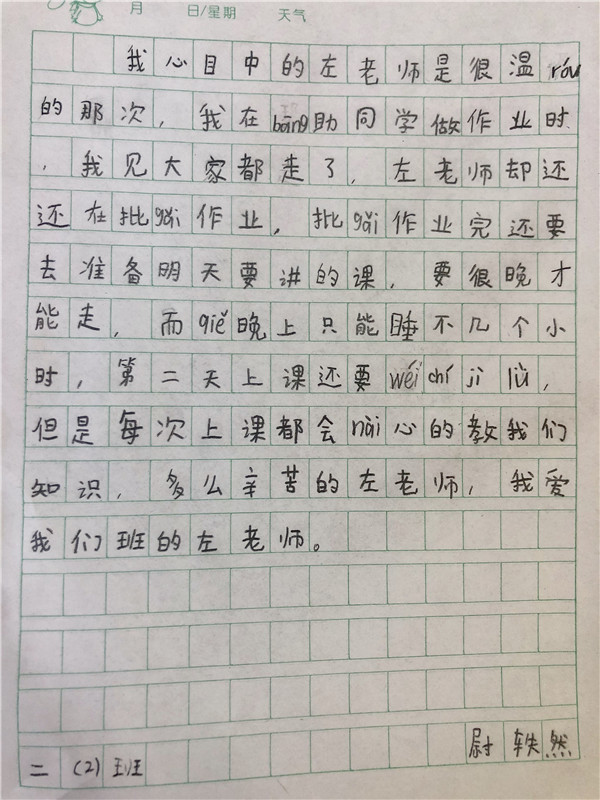 月 日/星期 天气
我心目中的左老师是很温róu
的那次，我在bāng助同学做作业时
，我见大家都走了，左老师却还
还在批gǎi作业，批gǎi作业完还要
去准备明天要讲的课，要很晚才
能走，而qiě晚上只能睡不几个小
时，第二天上课还要wéi chí jì lǜ，
但是每次上课都会nài心的教我们
知识，多么辛苦的左老师，我爱
我们班的左老师。
二（2）班 尉轶然